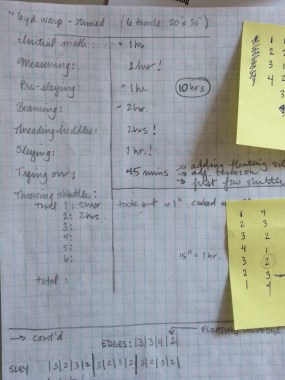 ~ 6yd warp - timed (6 towels 20 x 30")
Initial math: ~ 1 hr
Measuring: 2 hr!
Pre-sleying: ~ 1 hr
10 hrs
Beaming: ~ 2 hr.
Threading heddles: 2 hrs!
Sleying: 1 hr!
Tying on: 45 mins
→ adding floating sel
→ adj. tension
→ first few shuttle
Throwing shuttle:
towel 1: 2 hrs
2: 2 hrs
3:
4:
5:
6:
took out ~ 1"
15" = 1 hr.
total:
→ cont'd
EDGES: |3|4|2|
FLOATING
SLEY |2|2|3|2|3|2|3|2|3|2|3|2|
1
2
3
4
2 4
3
4 1
3 2
2 3
1 4